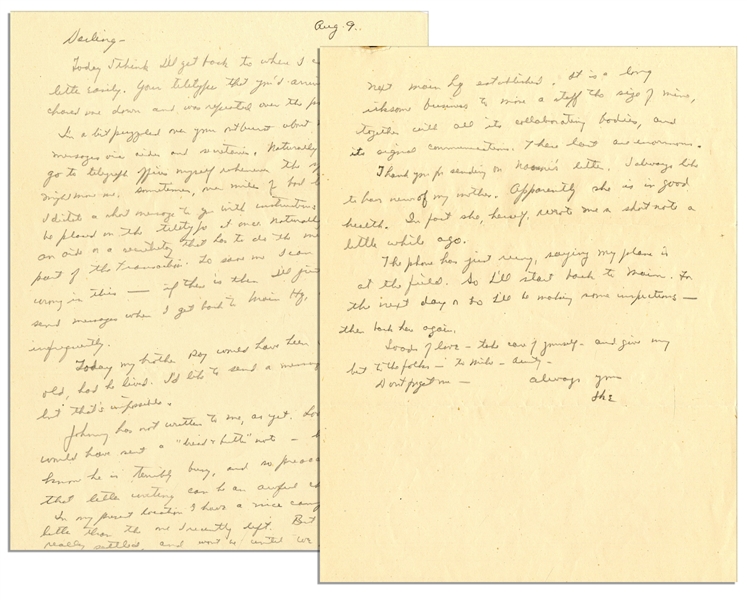 Aug. 9..
Darling -
Today I think I'll get back to where I c
letter easily. Your teletype that you'd arriv
chased me down and was repeated over the p
I'm a bit puzzled over your outburst about
messages via aides and secretaries. Naturally
go to telegraph offices myself whenever the
might move me. Sometimes, over miles of bad
I dictate a short message to go with instructions
be placed on the teletype at once. Naturally
an aide or a secretary that has to do the
part of the transaction. I'm sure I can
wrong in this — if there is then I'll just
send messages when I get back to Main Hq,
infrequently.
Today my brother Roy would have been
old, had he lived. I'd like to send a message
but that's impossible.
Johnny has not written to me, as yet.
would have sent a "bread & butter" note -
know he is terribly busy, and so
that letter writing can be an awful
In my present location I have a nice camp
better than the one I recently left. But
really settled, and won't be until we
next main hq established. It is a long
irksome business to move a staff the size of mine,
together with all its collaborating bodies, and
its signal communications. These last are enormous.
Thank you for sending on Naomi's letter. I always like
to hear news of my mother. Apparently she is in good
health. In fact she, herself, wrote me a short note a
little while ago.
The phone has just rung, saying my plane is
at the field. So I'll start back to Main. For
the next day or so I'll be making some inspections —
then back here again.
Loads of love - take care of yourself - and give my
best to the folks - to Mike - Aunty -
Don't forget me — always your
Ike